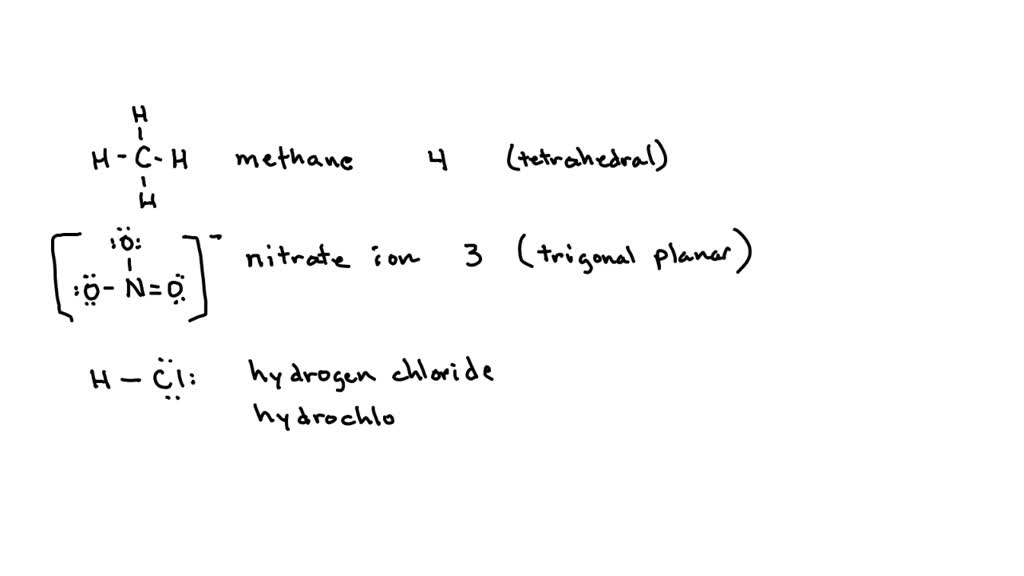 H
H - C - H methane 4 (tetrahedral)
H
[:Ö: nitrate ion 3 (trigonal planar)
:Ö - N = O]⁻
H - Cl: hydrogen chloride
hydrochlo